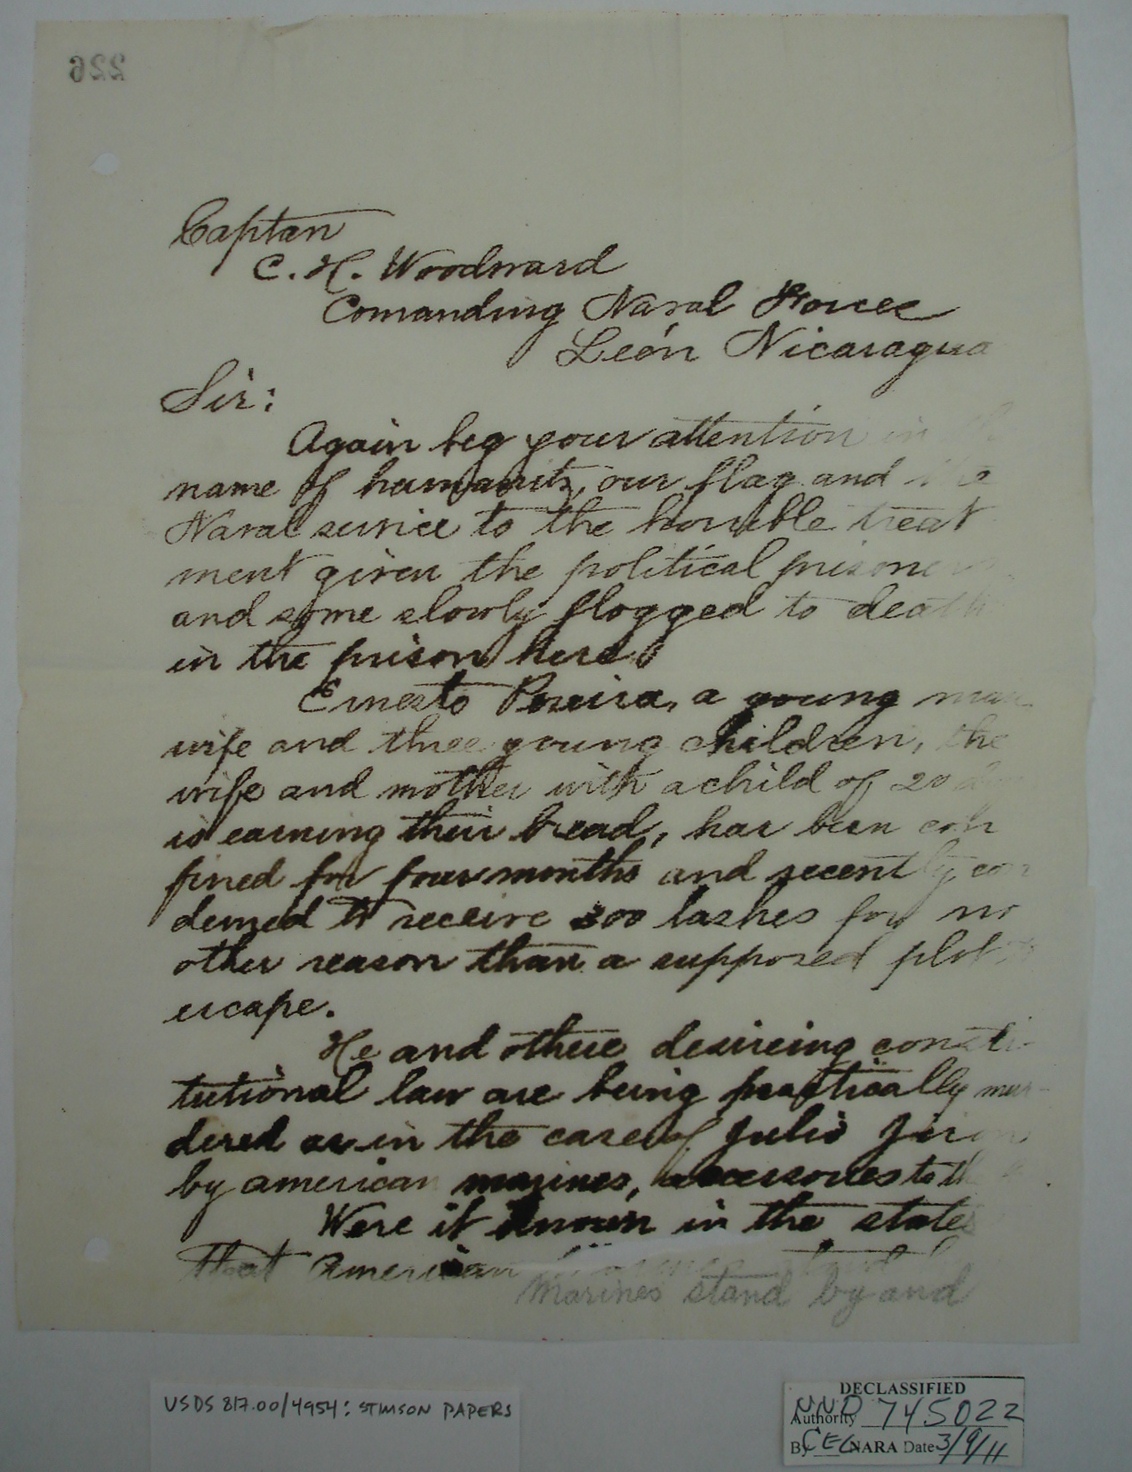 226
Captan
C. H. Woodward
Comanding Naval Forces
León Nicaragua
Sir:
Again beg your attention in
name of humanity, our flag and the
Naval service to the horrible treat
ment given the political prisoners
and some slowly flogged to death
in the prison here.
Ernesto Pereira, a young man
wife and three young children, the
wife and mother with a child of 20
is earning their bread, has been con
fined for four months and recently con
demed to receive 300 lashes for no
other reason than a supposed plot
escape.
He and others desireing consti-
tutional law are being practically mur-
dered as in the case of Julio
by american marines, accessories to the
Were it known in the states
that American marines stand
marines stand by and
USDS 817.00/4954: STIMSON PAPERS
DECLASSIFIED
Authority NND 745022
By CEC NARA Date 3/9/11